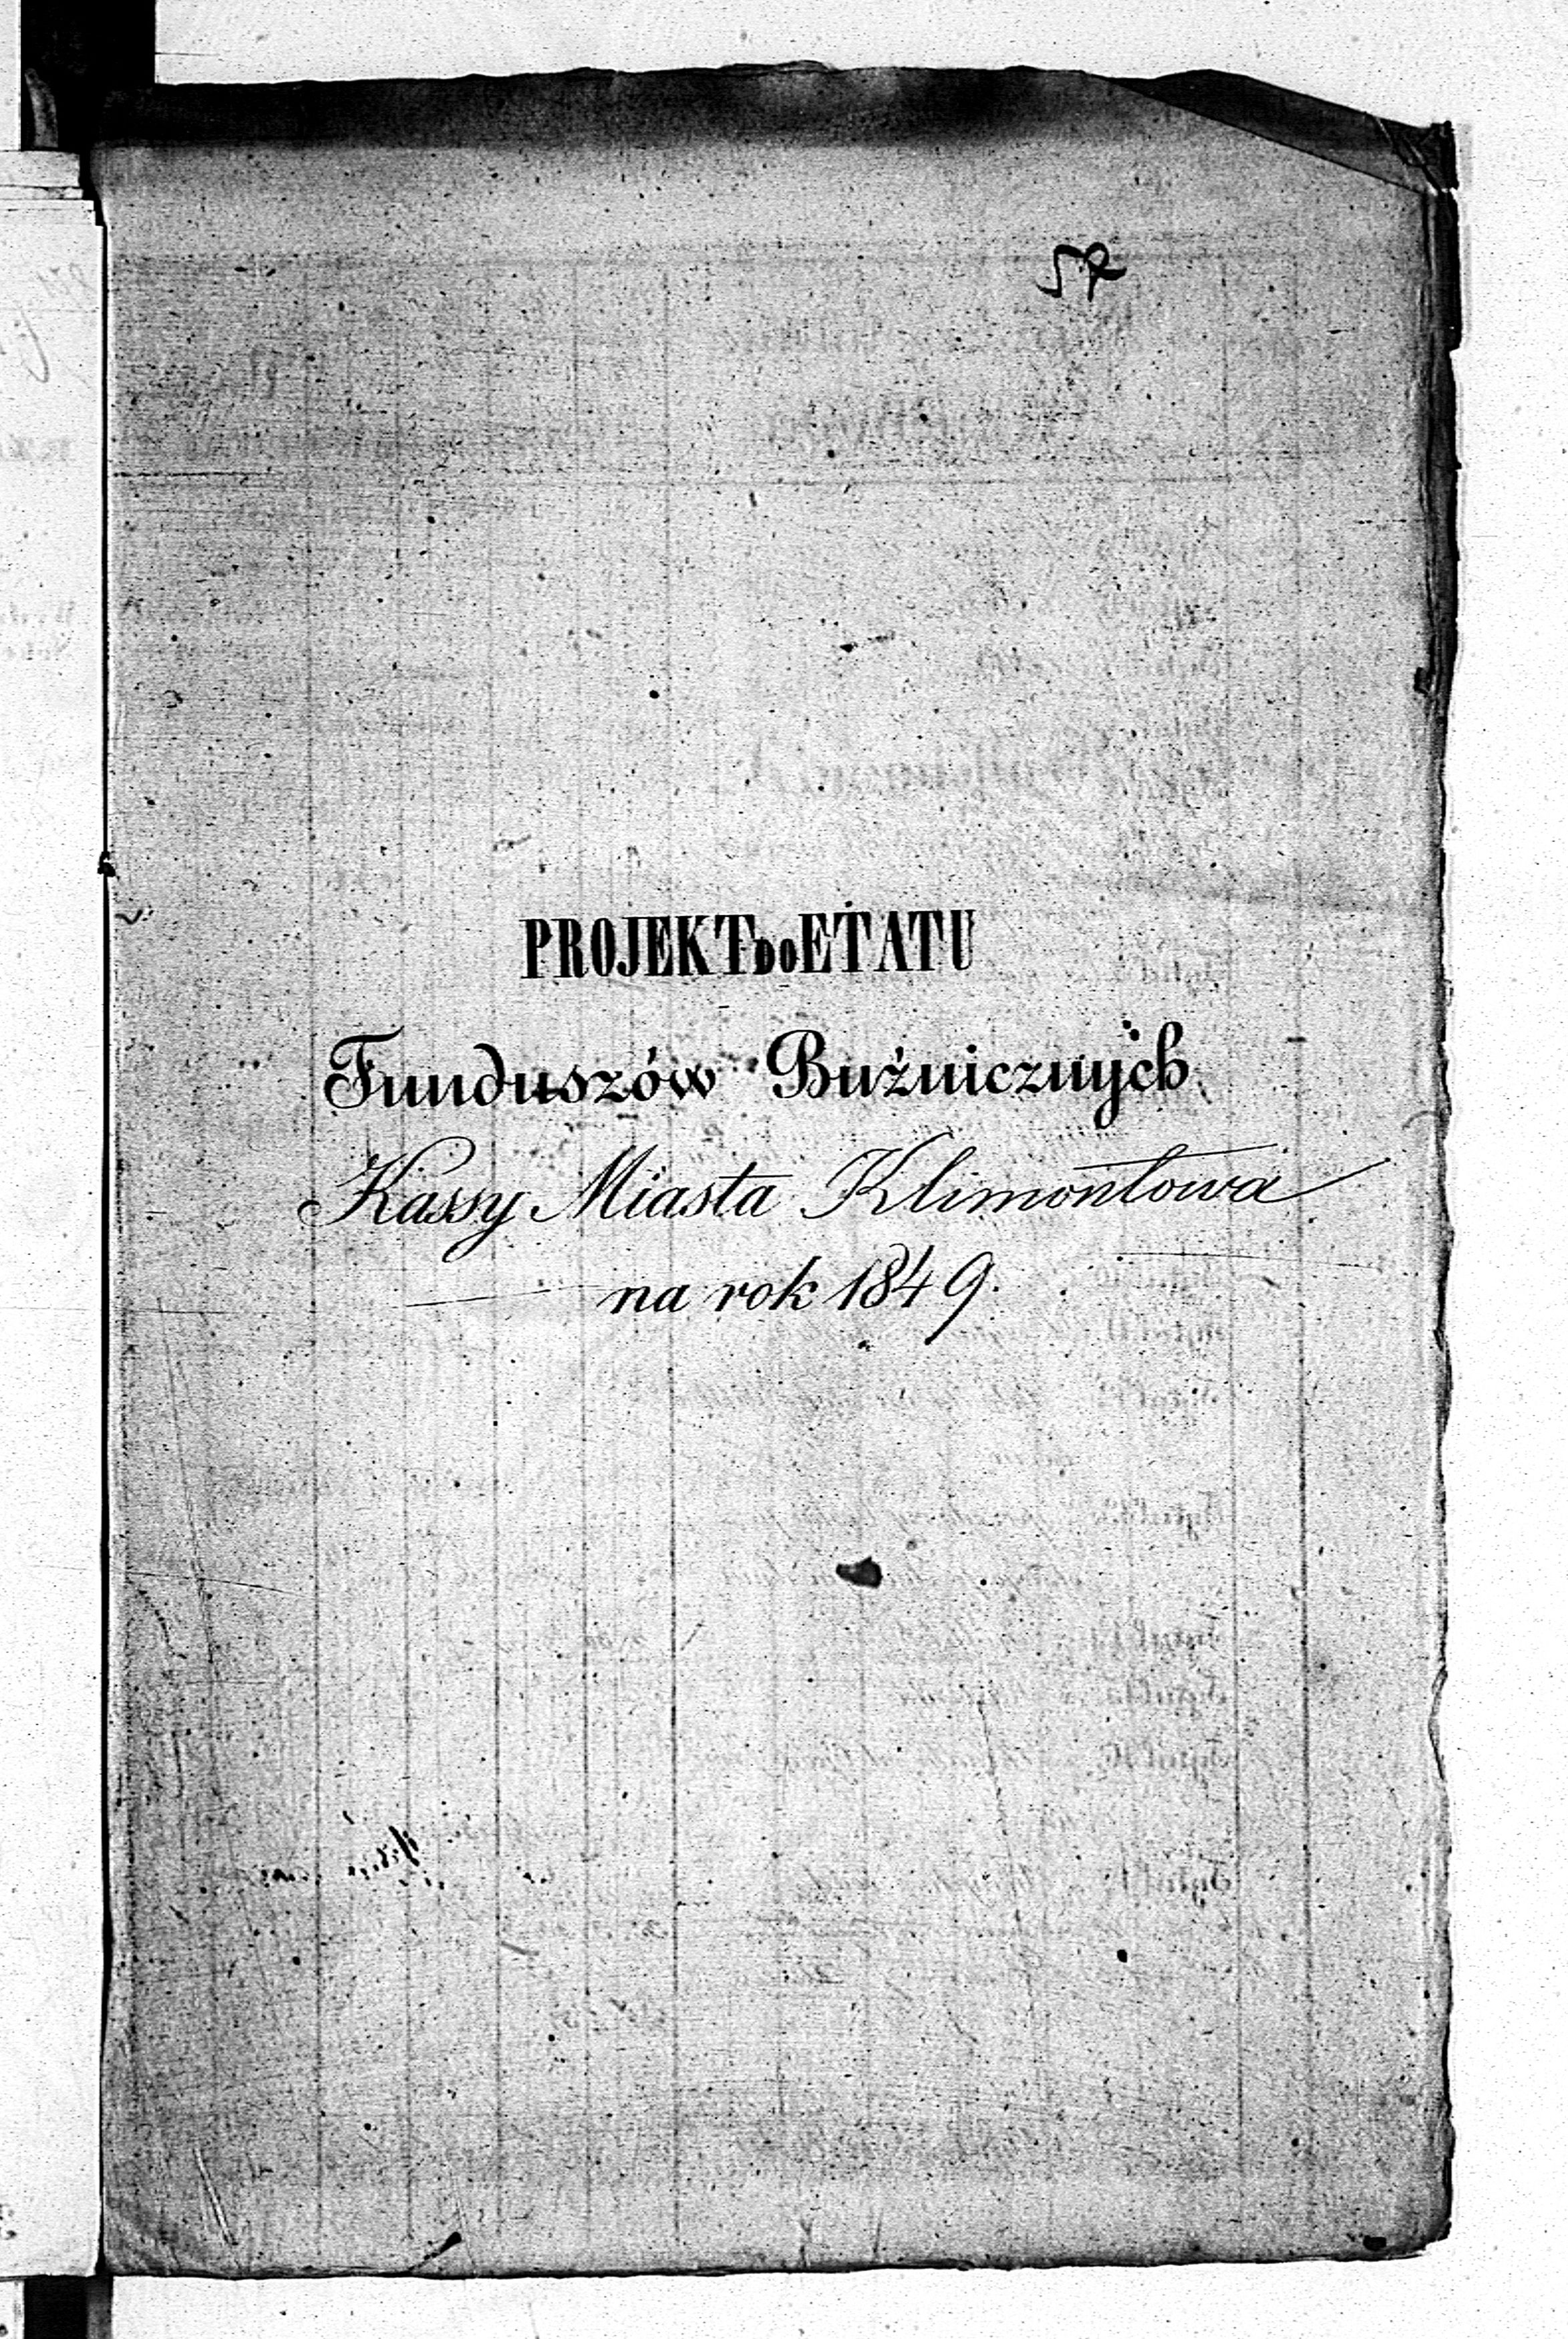 57
PROJEKT DO ETATU
Funduszów Bużnicznych
Kassy Miasta Klimontowa
na rok 1849.